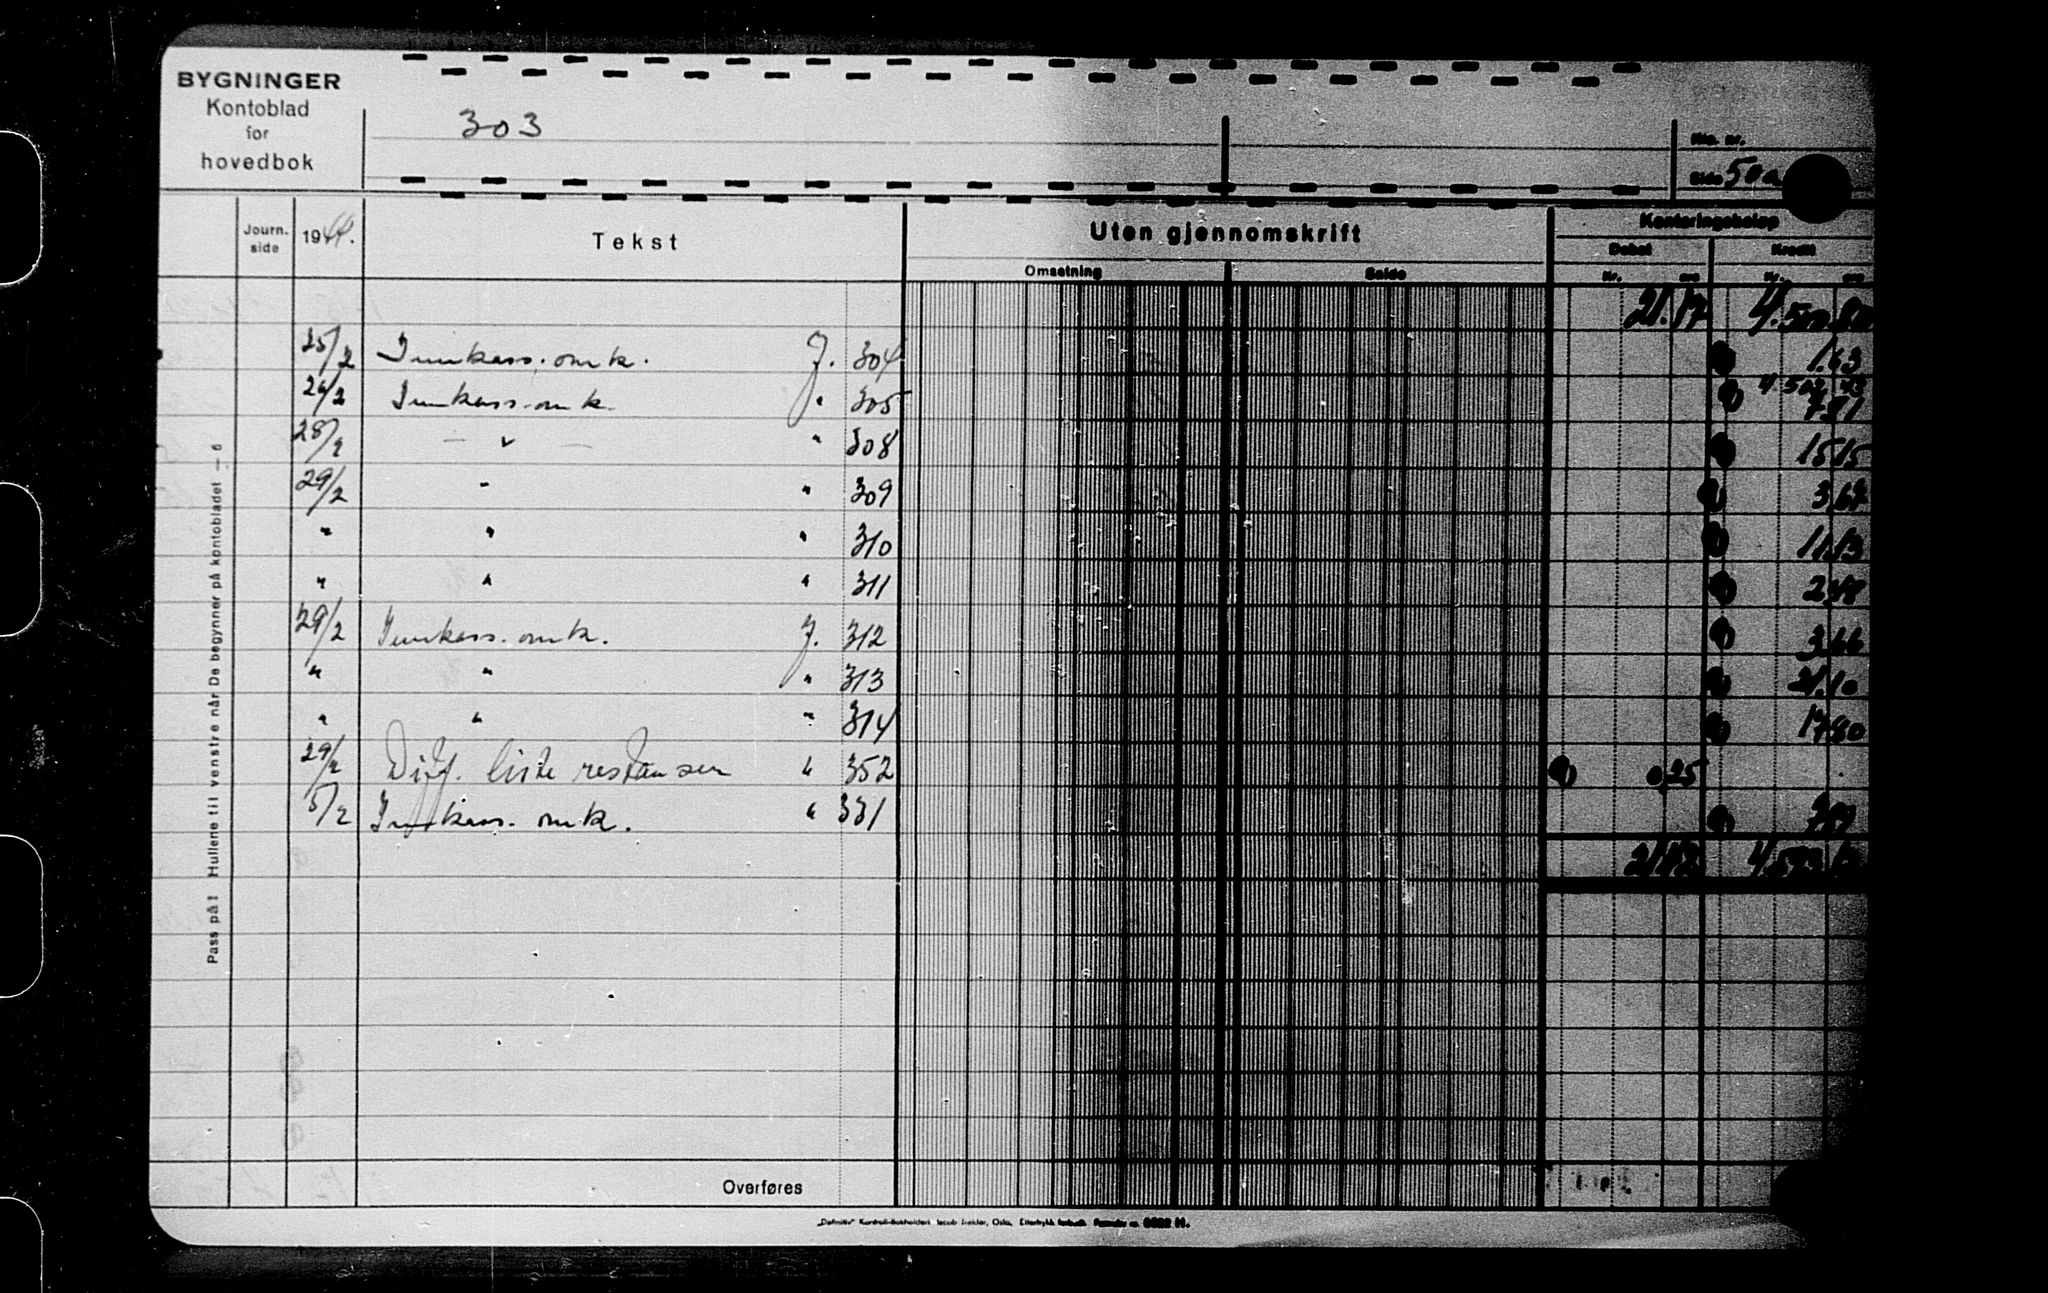 BYGNINGER
Kontoblad
for
hovedbok
303
Kto. nr.
Side 50a
Journ. side 1944. Tekst Uten gjennomskrift Konteringsbeløp
Omsetning Saldo Debet Kredit
Kr. øre Kr. øre
21.17 4.500.80
25/2 Innkass. omk. J. 304 1.63
4.502.43
26/2 Innkass. omk. " 305 7.81
28/2 — " — " 308 15.15
29/2 " " 309 3.67
" " " 310 11.13
" " " 311 2.48
29/2 Innkass. omk. J. 312 3.66
" " " 313 21.10
" " " 314 17.80
29/2 Diff. liste restanser " 352 0.25
5/2 Innkass. omk. " 331
21.42
Pass på! Hullene til venstre når De begynner på kontobladet — 6
Overføres
"Definitiv" Kontroll-Bokholderi Oslo, Ettertrykk forbudt.